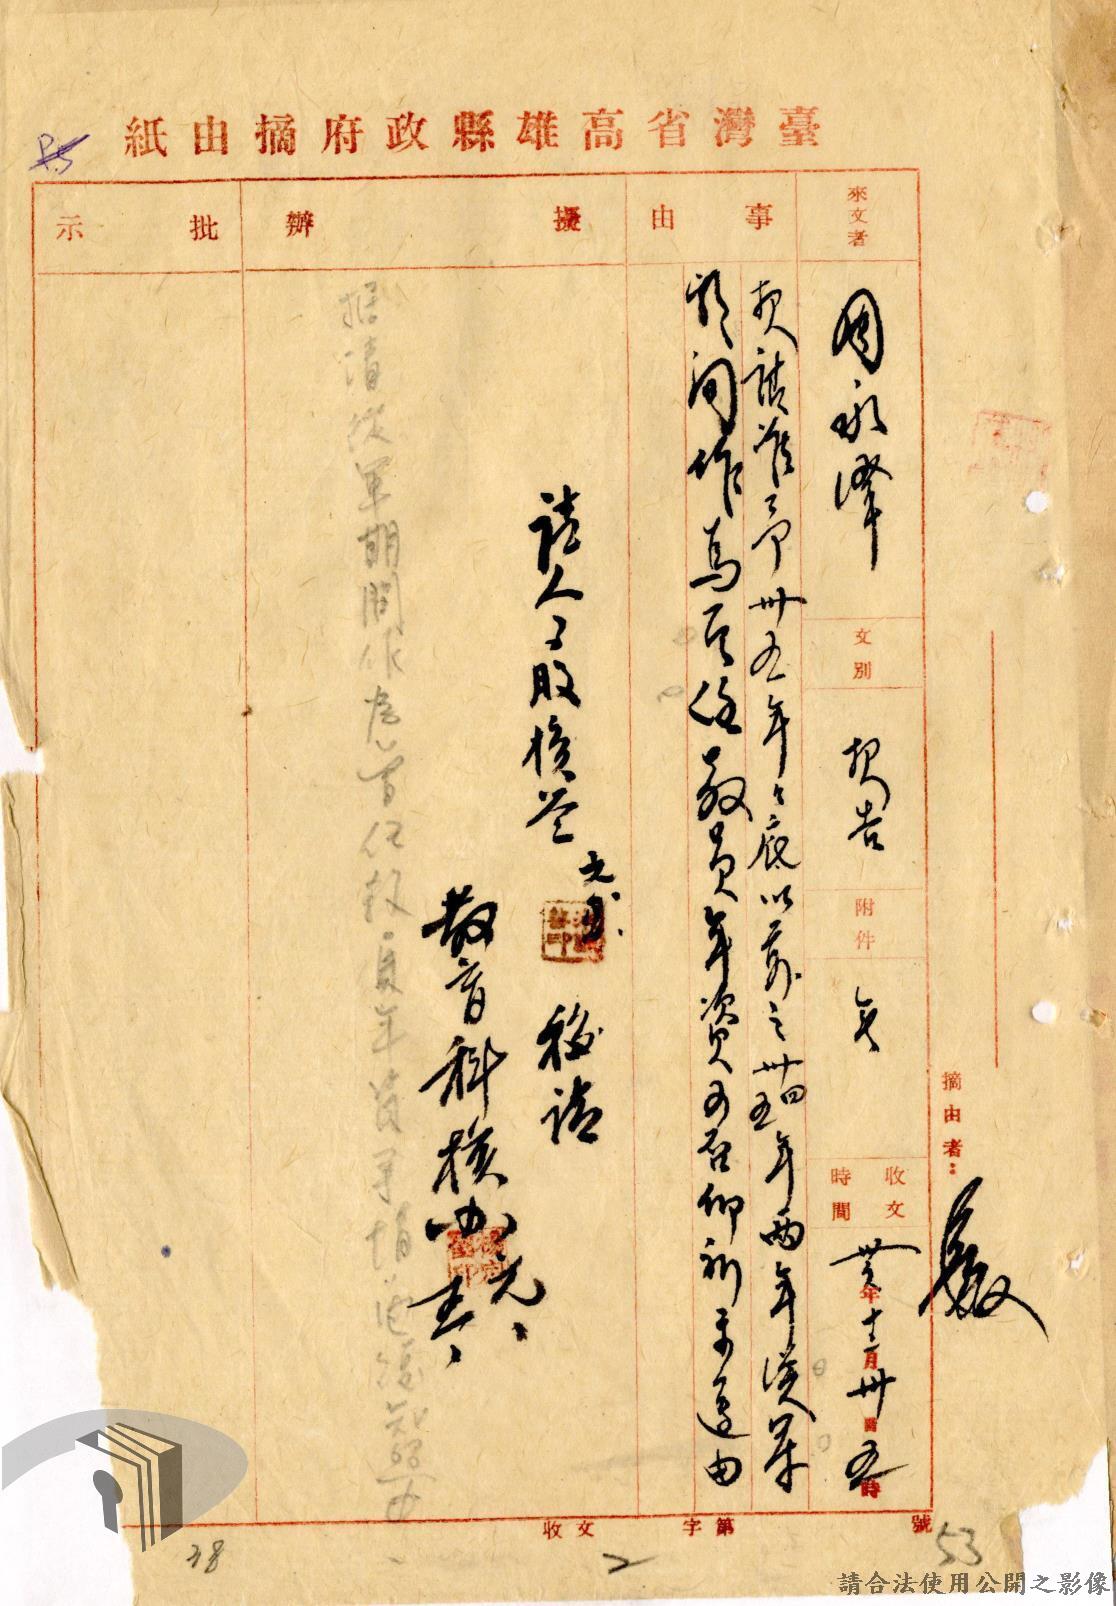 臺灣省高雄縣政府摘由紙
P.5
來文者
周永澤
文別
報告
附件
無
收文時間
卅年十二月卅日五時
摘由者：
嚴
事由
契請准予卅五年年底以前之卅四五年兩年從軍
期間作為原任教員年資可否仰祈示遵由
擬辦
請人事股核簽
元
移請
教育科核辦
元
據請從軍期間作為曾任教員年資
批示
收文 字第 號
38
2
53
請合法使用公開之影像